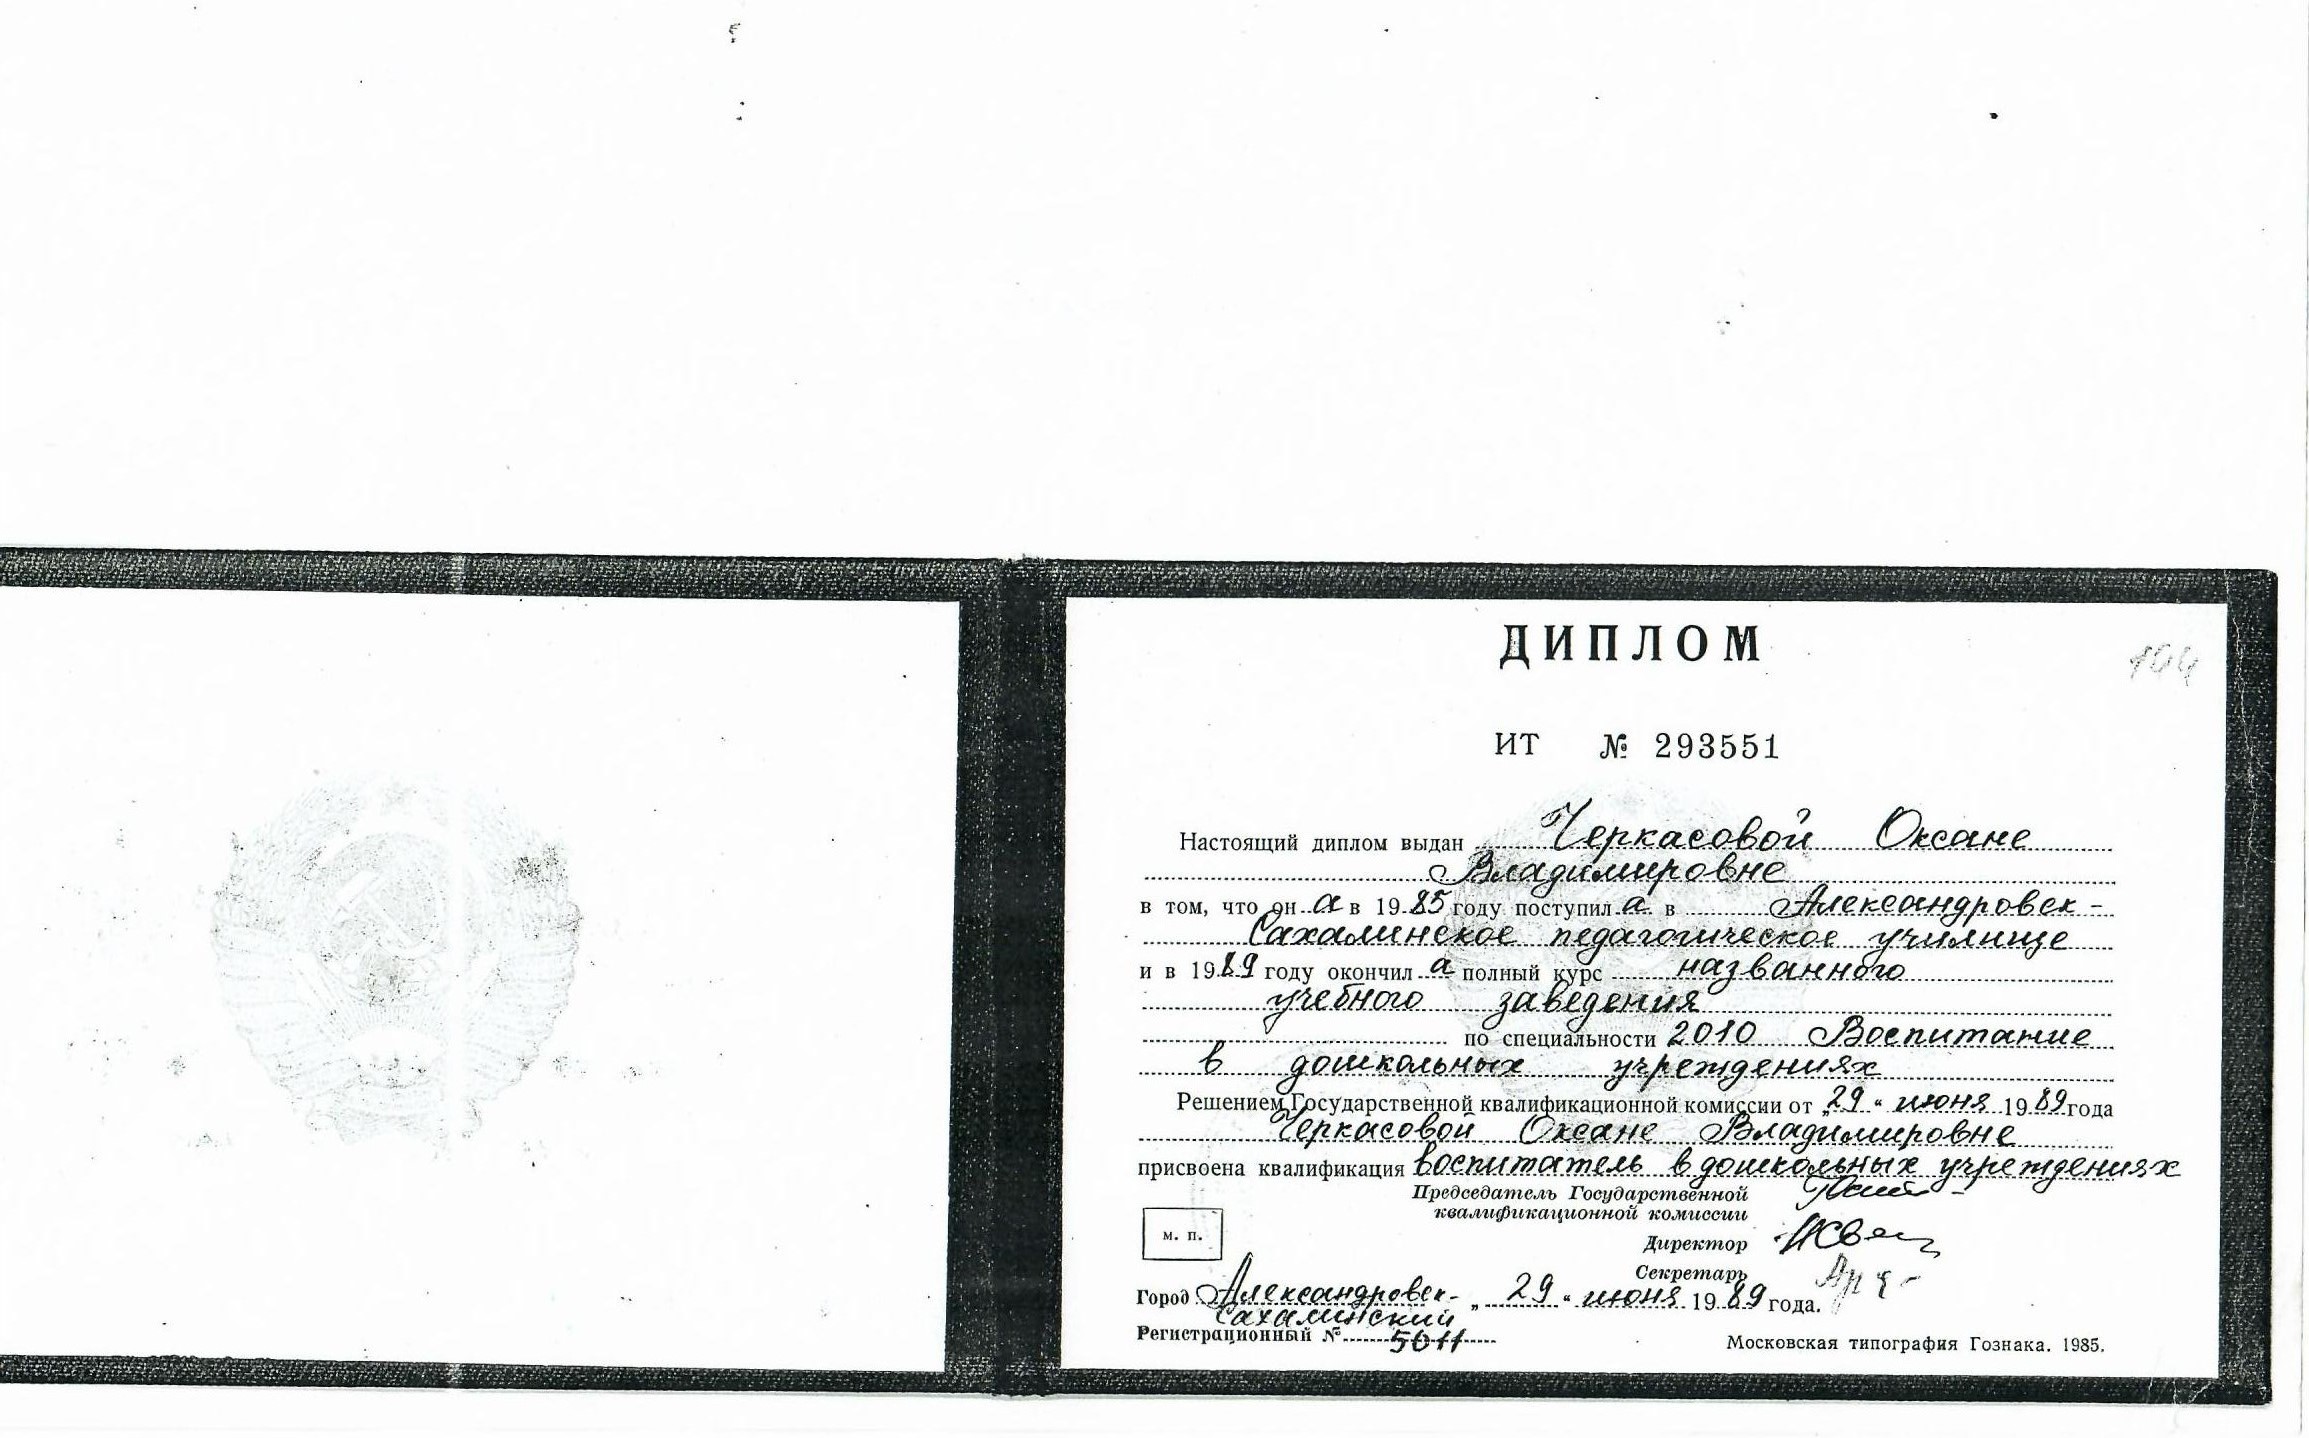 ДИПЛОМ
104
ИТ № 293551
Настоящий диплом выдан Черкасовой Оксане
Владимировне
в том, что он а в 19 85 году поступил а в Александровск-
Сахалинское педагогическое училище
и в 19 89 году окончил а полный курс названного
учебного заведения
по специальности 2010 Воспитание
в дошкольных учреждениях
Решением Государственной квалификационной комиссии от „29“ июня 19 89 года
Черкасовой Оксане Владимировне
присвоена квалификация воспитатель в дошкольных учреждениях
Председатель Государственной
квалификационной комиссии
м. п.
Директор
Секретарь
Город Александровск- „29“ июня 19 89 года.
Сахалинский
Регистрационный № 5011
Московская типография Гознака. 1985.